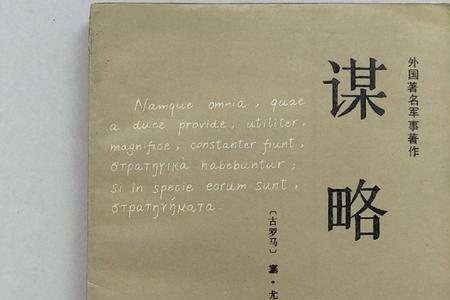 外国著名军事著作
谋略
Namque omnia, quae
a duce provide, utiliter,
magnifice, constanter fiunt,
στρατηγικά habebuntur;
si in specie eorum sunt,
στρατηγήματα.
〔古罗马〕塞·尤